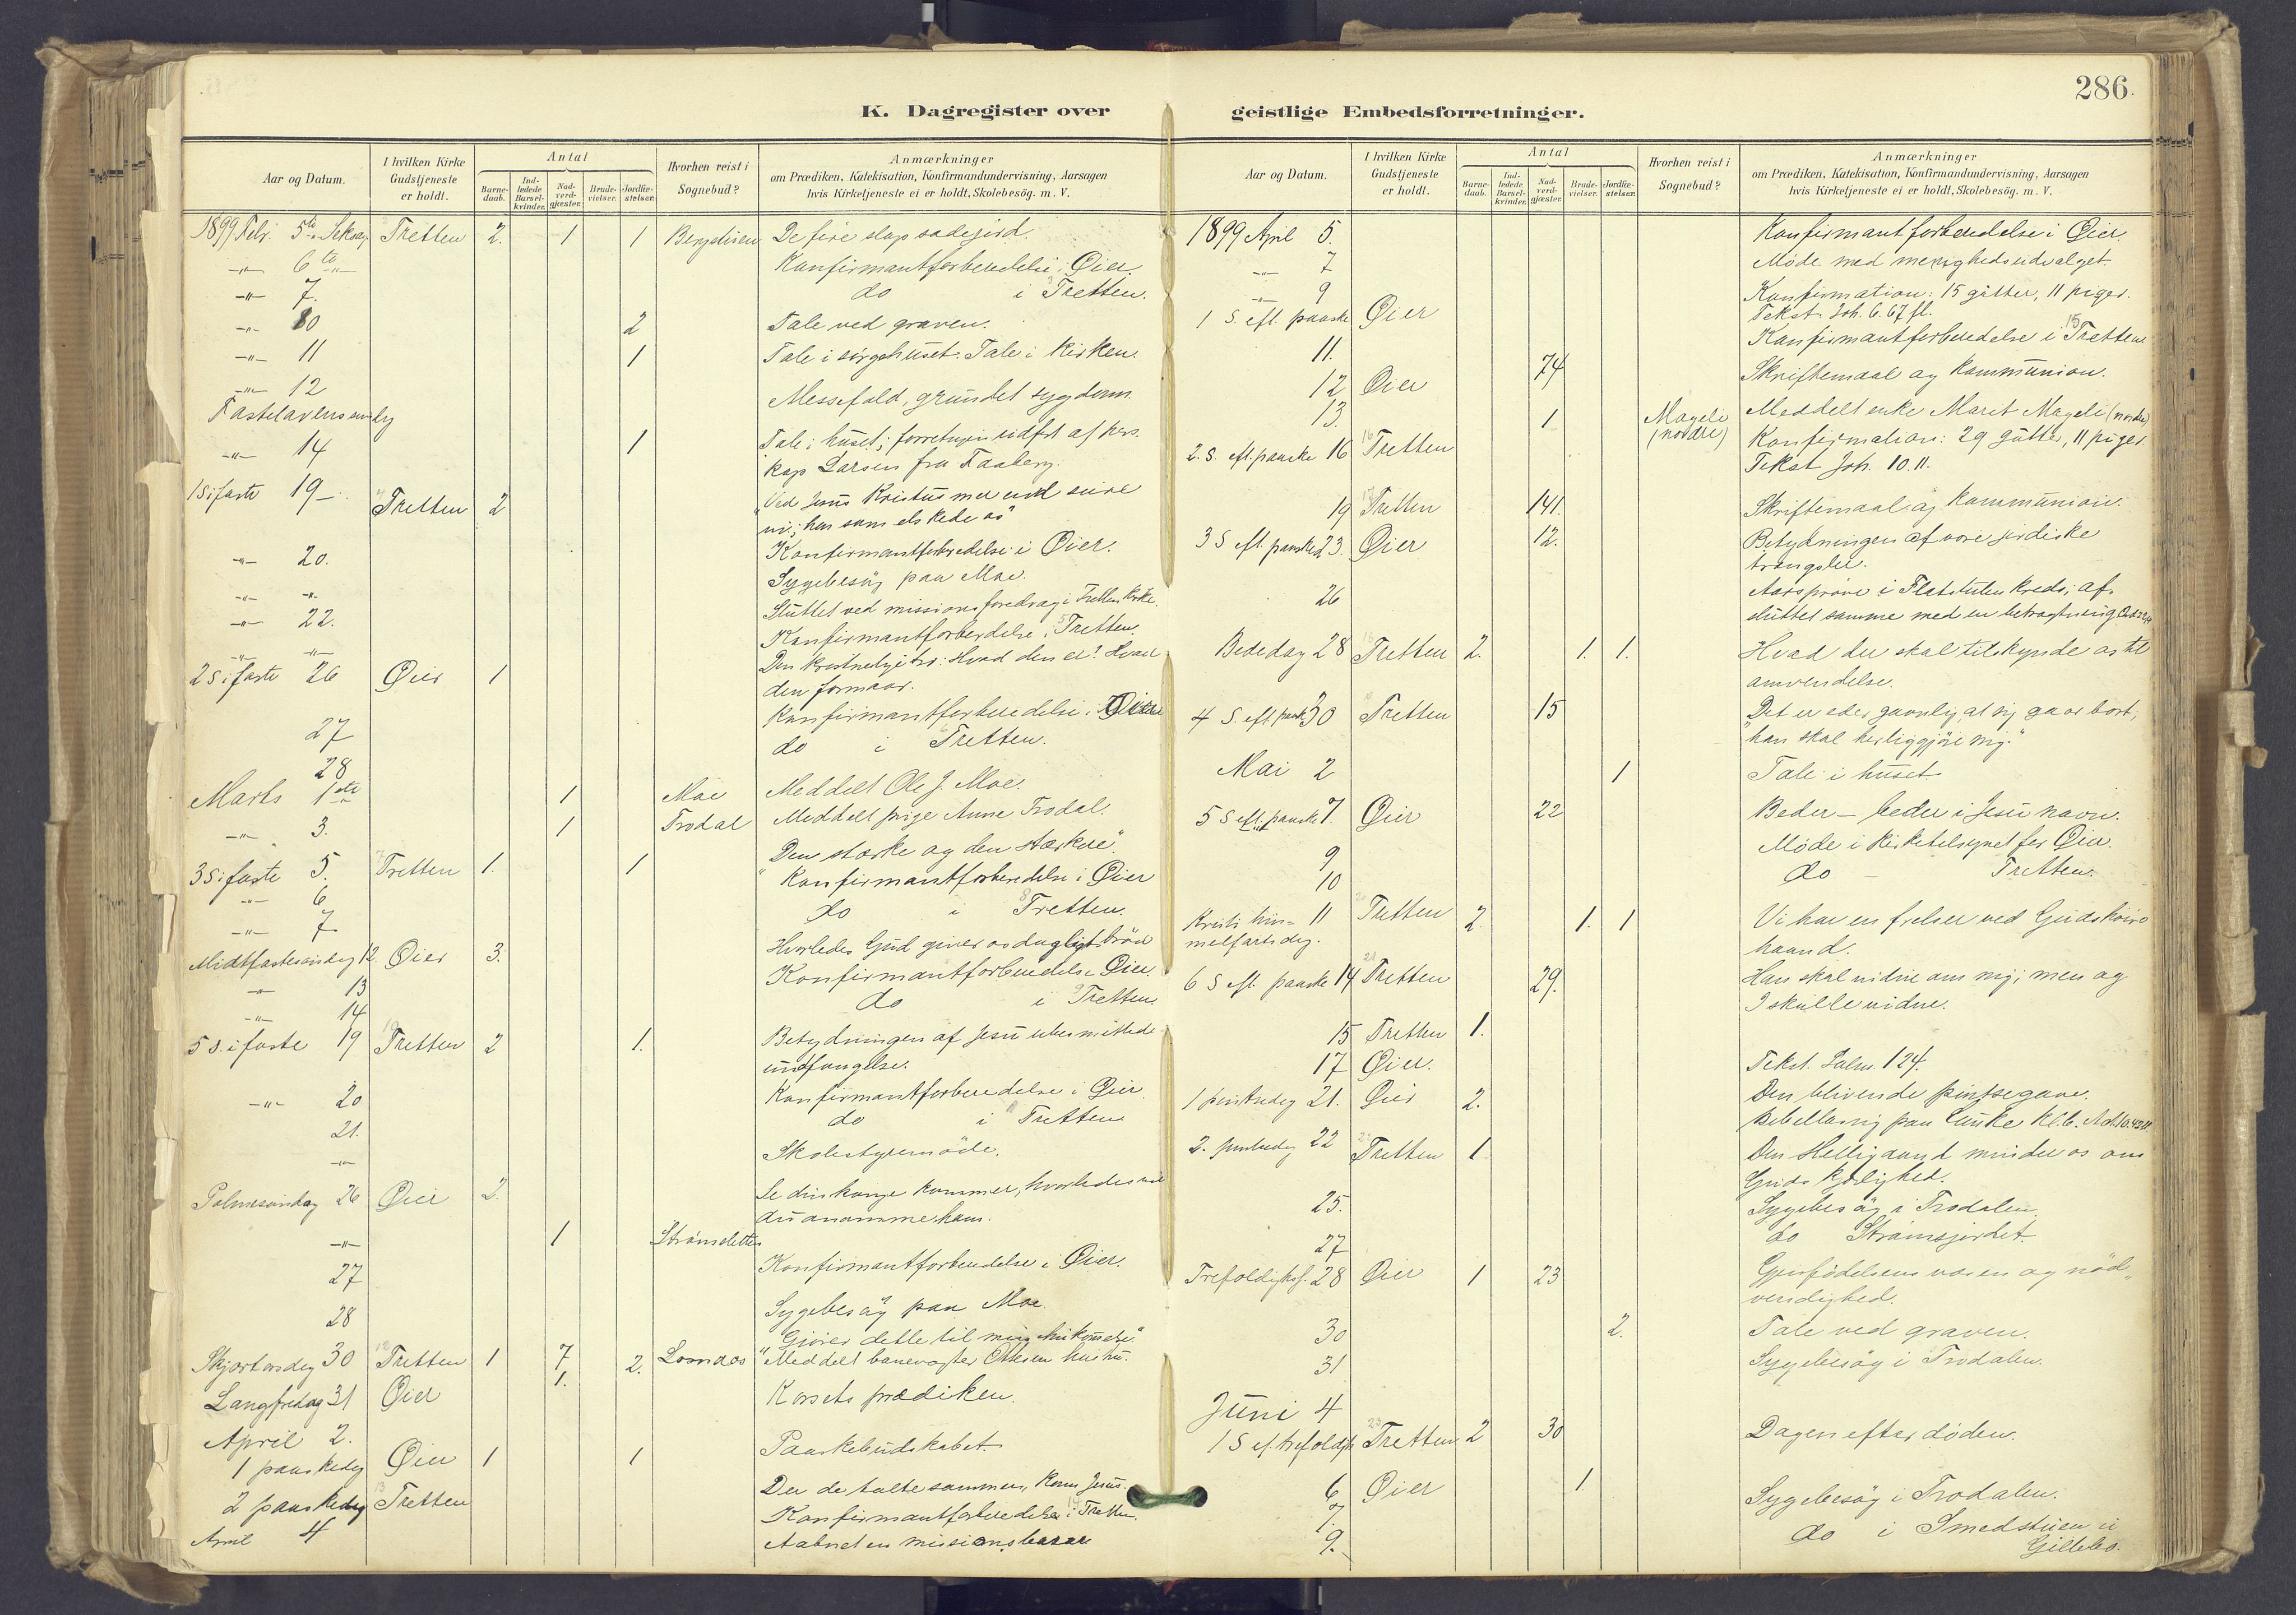 286.
K. Dagregister over geistlige Embedsforretninger.
Aar og Datum.
I hvilken Kirke Gudstjeneste er holdt.
Antal
Barne-daab.
Ind-ledede Barsel-kvinder.
Nad-verd-gjæster.
Brude-vielser.
Jordfæ-stelser.
Hvorhen reist i Sognebud?
Anmærkninger
om Prædiken, Katekisation, Konfirmandundervisning, Aarsagen
hvis Kirketjeneste ei er holdt, Skolebesög. m. V.
1899 Febr. 5te Tretten 2. 1 1 De fire slags sædejord.
-"- 6te Konfirmantforberedelse i Øier.
-"- 7. do i Tretten.
-"- 10 2 Tale ved graven.
-"- 11 1 Tale i sörgehuset. Tale i kirken.
-"- 12 Messefald, grundet sygdom.
Fastelavenssöndag
-"- 14 1 Tale i huset; forretningen udført af pers.
kap Larsen fra Faaberg.
1 S i faste 19 Tretten 2 "Ved Jesus Kristus mer end seire
vi; han som elskede os"
-"- 20. Konfirmantforberedelse i Øier.
-"- -"- Sygebesög paa Moe.
-"- 22. Sluttet ved missionsforedrag i Tretten kirke.
-"- -"- Konfirmantforberedelse i Tretten.
2 S i faste 26 Øier 1 Den kristnes tro: Hvad den er? Hvad
den formaar.
27 Konfirmantforberedelse i Øier
28 do i Tretten.
Marts 1ste 1 Moe Meddelt Ole J. Moe.
-"- 3. 1 Trodal Meddelt pige Anne Trodal.
3 S i faste 5. Tretten 1. 1 "Den stærke og den stærkere".
-"- 6 Konfirmantforberedelse i Øier
-"- 7 do i Tretten.
Midtfastesöndag 12. Øier 3. Hvorledes Gud giver os dagligt bröd
-"- 13 Konfirmantforberedelse Øier.
-"- 14 do i Tretten
5 S. i faste 19 Tretten 2 1. Betydningen af Jesu ubesmittede
undfangelse.
-"- 20 Konfirmantforberedelse i Øier.
21. do i Tretten
-"- Skolestyremöde.
Palmesöndag 26 Øier 2. Se din konge kommer, hvorledes vil
du anamme ham.
-"- 1 Strömsletten
27 Konfirmantforberedelse i Øier.
28 Sygebesög paa Moe
Skjærtorsdag 30 Tretten 1 7 2. "Gjörer dette til min ihukommelse"
1. Losnaos Meddelt banevogter Olsens hustru.
Langfredag 31 Øier Korsets prædiken.
April 2.
1 paaskedag Øier 1 1 Paaskebudskabet.
2 paaskedag Tretten Der de talte sammen, kom Jesus.
April 4 Konfirmantforberedelse i Tretten.
Aabnet en missionsbasar
Aar og Datum.
I hvilken Kirke Gudstjeneste er holdt.
Antal
Barne-daab.
Ind-ledede Barsel-kvinder.
Nad-verd-gjæster.
Brude-vielser.
Jordfæ-stelser.
Hvorhen reist i Sognebud?
Anmærkninger
om Prædiken, Katekisation, Konfirmandundervisning, Aarsagen
hvis Kirketjeneste ei er holdt, Skolebesög. m. V.
1899 April 5. Konfirmantforberedelse i Øier.
-"- 7 Möde med menighedsudvalget.
-"- 9 Konfirmation: 15 gutter, 11 piger.
1 S. eft. paaske Øier Tekst Joh. 6. 67 fl.
11. Konfirmantforberedelse i Tretten
12 Øier 74 Skriftemaal og kommunion.
13. 1 Mageli (nordre) Meddelt enke Marit Mageli (nordre)
2. S. eft. paaske 16 Tretten Konfirmation: 29 gutter, 11 piger.
Tekst Joh. 10. 11.
19 Tretten 141. Skriftemaal og kommunion.
3 S eft. paaske 23. Øier 12. Betydningen af vore jordiske
trængsler.
26 Aarspröve i Flatstuten kreds; af-
sluttet samme med en betragtning
Bededag 28 Tretten 2. 1. 1. Hvad der skal tilskynde os til
omvendelse.
4 S. eft. paaske 30 Tretten 15 "Det er eder gavnlig at jeg gaar bort;
han skal herliggjöre mig."
Mai 2 1 Tale i huset
5 S eft. paaske 7. Øier 22 Beder – beder i Jesu navn.
9 Möde i kirketilsynet for Øier.
10 do – Tretten.
Kristi him- 11 Tretten 2. 1. 1 Vi har en frelser ved Guds höire
melfartsdag. haand.
6 S eft. paaske 14 Tretten 29. Han skal vidne om mig; men og
I skulle vidne.
15 Tretten 1.
17 Øier. Tekst. Salm. 124.
1 pinsedag 21. Øier 2. Den blivende pintsegave.
Bibellæsning paa Lunke kl. 6.
2. pinsedag 22 Tretten 1 Den Helligaand minder os om
Guds kjærlighed.
25. Sygebesög i Trodalen.
27 do Strömsjordet.
Trefoldighsf. 28 Øier 1 23 Gjenfödelsens væsen og nöd-
vendighed.
30 2. Tale ved graven.
31 Sygebesög i Trodalen.
Juni 4
1 S ef. trefoldigh Tretten 2 30 Dagen efter döden.
6 Øier 1.
7. Sygebesög i Trodalen.
9. do i Smedstuen u
Gillebo.